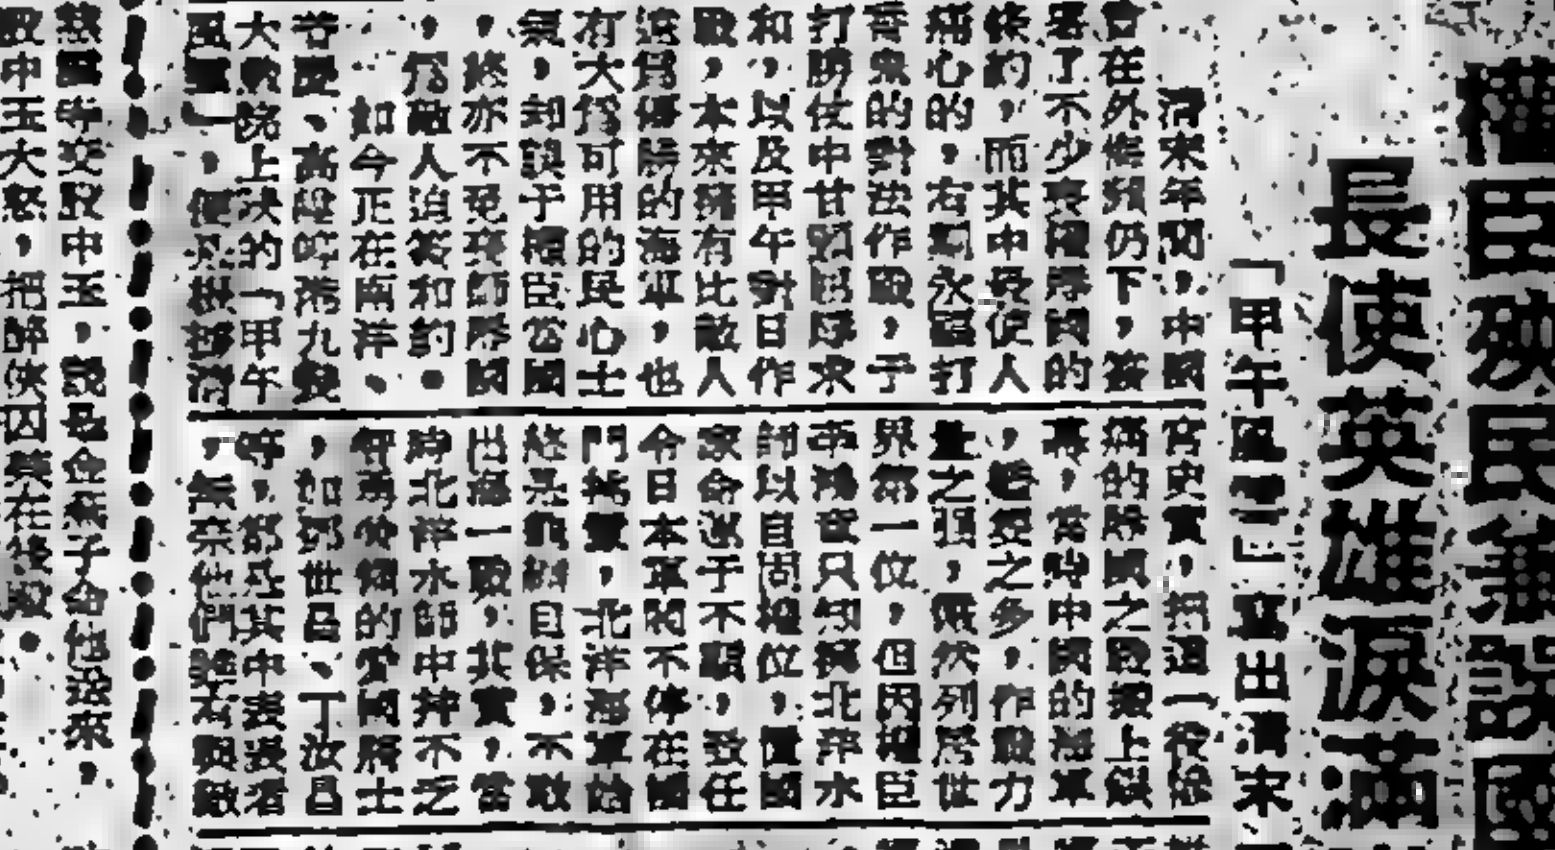 權臣殃民兼誤國
長使英雄淚滿
「甲午風雲」寫出清末
清末年間,中國
曾在外侮頻仍下,簽
署了不少喪權辱國的
條約,而其中最使人
痛心的,有關永福打
番鬼的對法作戰,于
打勝仗中甘認屈辱求
和,以及甲午對日作
戰,本來擁有比敵人
遠爲優勝的海軍,也
有大爲可用的民心士
氣,却誤于權臣當國
,終亦不免喪師辱國
,爲敵人迫簽和約。
如今正在南洋、
普慶、高陞等港九幾
大戲院上映的「甲午
風雲」,便是根據清
宮史實,把這一役慘
痛的歷史之戰搬上銀
幕,當時中國的海軍
,艦隻之多,作戰力
量之強,儼然列居世
界第一位,但因權臣
李鴻章只知擁北洋水
師以自固權位,置國
家命運于不顧,致任
令日本軍閥不停在國
門挑釁,北洋海軍始
終 自保,不敢
出海一戰,其實,當
時北洋水師中并不乏
勇 的愛國將士
,如鄧世昌、丁汝昌
等,都是其中表表者
,無奈他們雖有與敵
中玉,說母金燕子命他送來。
中玉大怒,把師俠囚禁在後殿。